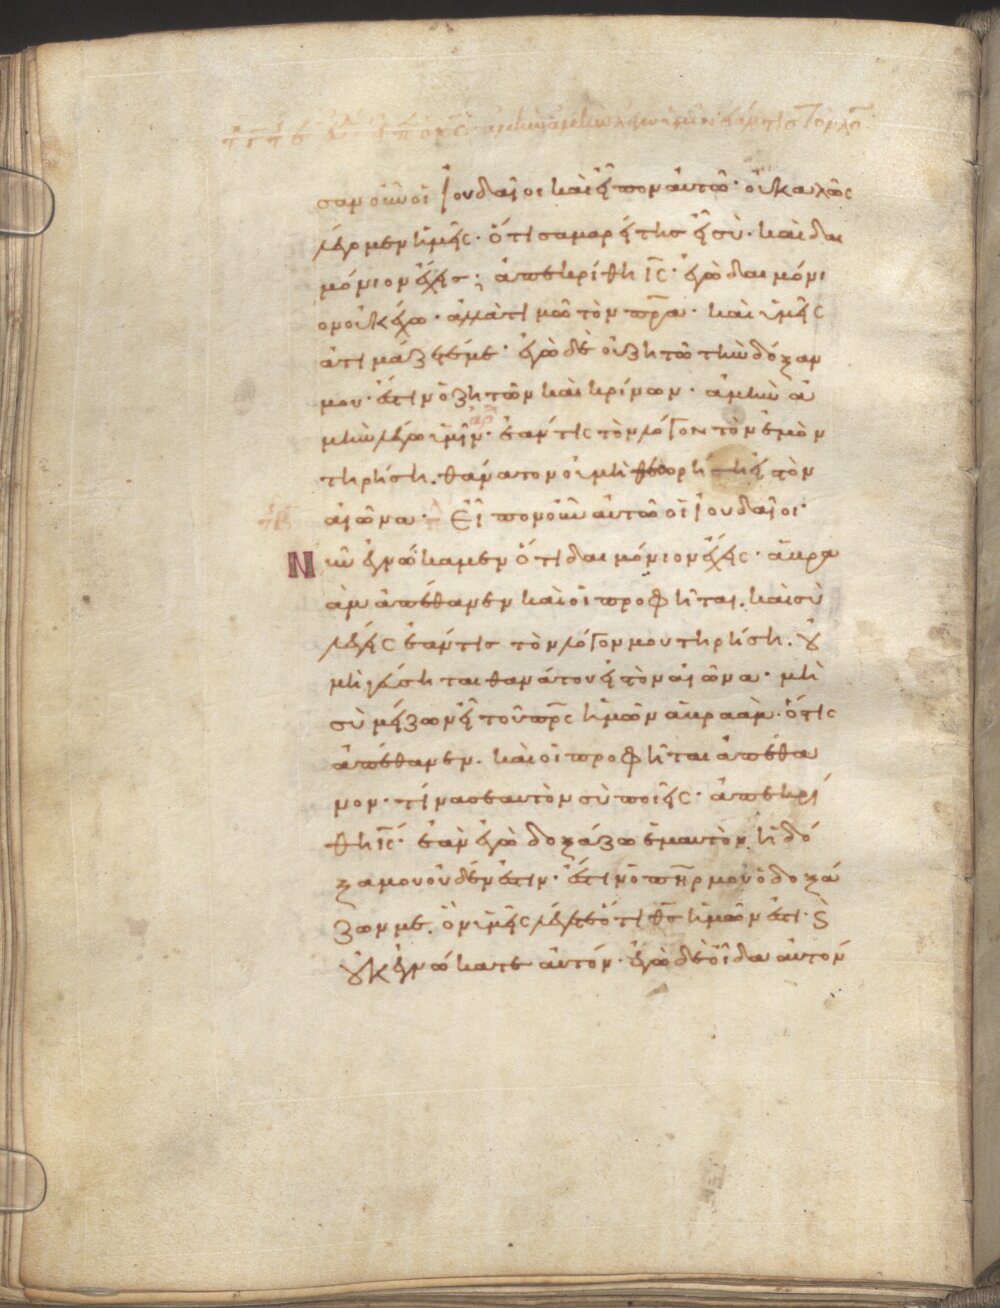 ἀμὴν ἀμὴν λέγω ὑμῖν ἐάν τις τὸν λό
σαν οὖν οἱ Ἰουδαῖοι καὶ εἶπον αὐτῶ· οὐ καλῶς
λέγομεν ἡμεῖς· ὅτι σαμαρείτης εἶ σὺ· καὶ δαι
μόνιον ἔχεις; ἀπεκρίθη ις· ἐγὼ δαιμόνι
ον οὐκ ἔχω· ἀλλὰ τιμῶ τὸν πρα· καὶ ὑμεῖς
ἀτιμάζετέ με· ἐγὼ δὲ οὐ ζητῶ τὴν δόξαν
μου· ἔστιν ὁ ζητῶν καὶ κρίνων· ἀμὴν ἀ
μὴν λέγω ὑμῖν· ἐάν τις τὸν λόγον τὸν ἐμὸν
τηρήση. θάνατον οὐ μὴ θεωρήση εἰς τὸν
αἰῶνα· Εἶπον οὖν αὐτῶ οἱ Ἰουδαῖοι·
Νῦν ἐγνώκαμεν ὅτι δαιμόνιον ἔχεις· ἀβρα
ὰμ ἀπέθανεν καὶ οἱ προφῆται. καὶ σὺ
λέγεις ἐάν τις τὸν λόγον μου τηρήση. οὐ
μὴ γεύσηται θανάτου εἰς τὸν αἰῶνα· μὴ
σὺ μείζων εἶ τοῦ πρς ἡμῶν ἀβραάμ· ὅστις
ἀπέθανεν. καὶ οἱ προφῆται ἀπέθα
νον· τίνα σεαυτὸν σὺ ποιεῖς· ἀπεκρί
θη ις· ἐὰν ἐγὼ δοξάζω ἐμαυτὸν, ἡ δό
ξα μου οὐδέν ἐστιν· ἔστιν ὁ πηρ μου ὁ δοξά
ζων με. ὃν ὑμεῖς λέγετε ὅτι θς ἡμῶν ἐστι· ϗ
οὐκ ἐγνώκατε αὐτόν· ἐγὼ δὲ οἶδα αὐτόν